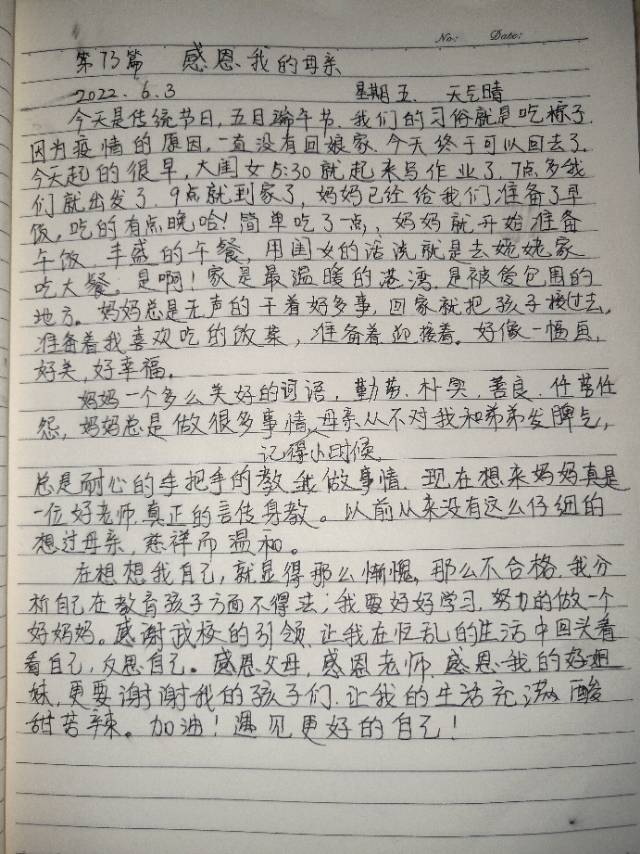 No: Date:
第73篇 感恩我的母亲
2022.6.3 星期五. 天气晴
今天是传统节日,五月端午节.我们的习俗就是吃粽子.
因为疫情的原因,一直没有回娘家.今天终于可以回去了.
今天起的很早,大闺女5:30就起来写作业了.7点多我
们就出发了.9点就到家了,妈妈已经给我们准备了早
饭,吃的有点晚哈!简单吃了一点,妈妈就开始准备
午饭.丰盛的午餐,用闺女的话说就是去姥姥家
吃大餐.是啊!家是最温暖的港湾.是被爱包围的
地方。妈妈总是无声的干着好多事,回家就把孩子接过去,
准备着我喜欢吃的饭菜,准备着迎接着。好像一幅画,
好美,好幸福。
妈妈一个多么美好的词语,勤劳.朴实,善良.任劳任
怨,妈妈总是做很多事情,母亲从不对我和弟弟发脾气,
记得小时候,
总是耐心的手把手的教我做事情.现在想来妈妈真是
一位好老师,真正的言传身教。以前从来没有这么仔细的
想过母亲,慈祥而温和。
在想想我自己,就显得那么惭愧,那么不合格.我分
析自己在教育孩子方面不得法;我要好好学习.努力的做一个
好妈妈。感谢武校的引领.让我在忙乱的生活中回头看
看自己,反思自己。感恩父母,感恩老师.感恩我的好姐
妹,更要谢谢我的孩子们.让我的生活充满酸
甜苦辣。加油!遇见更好的自己!